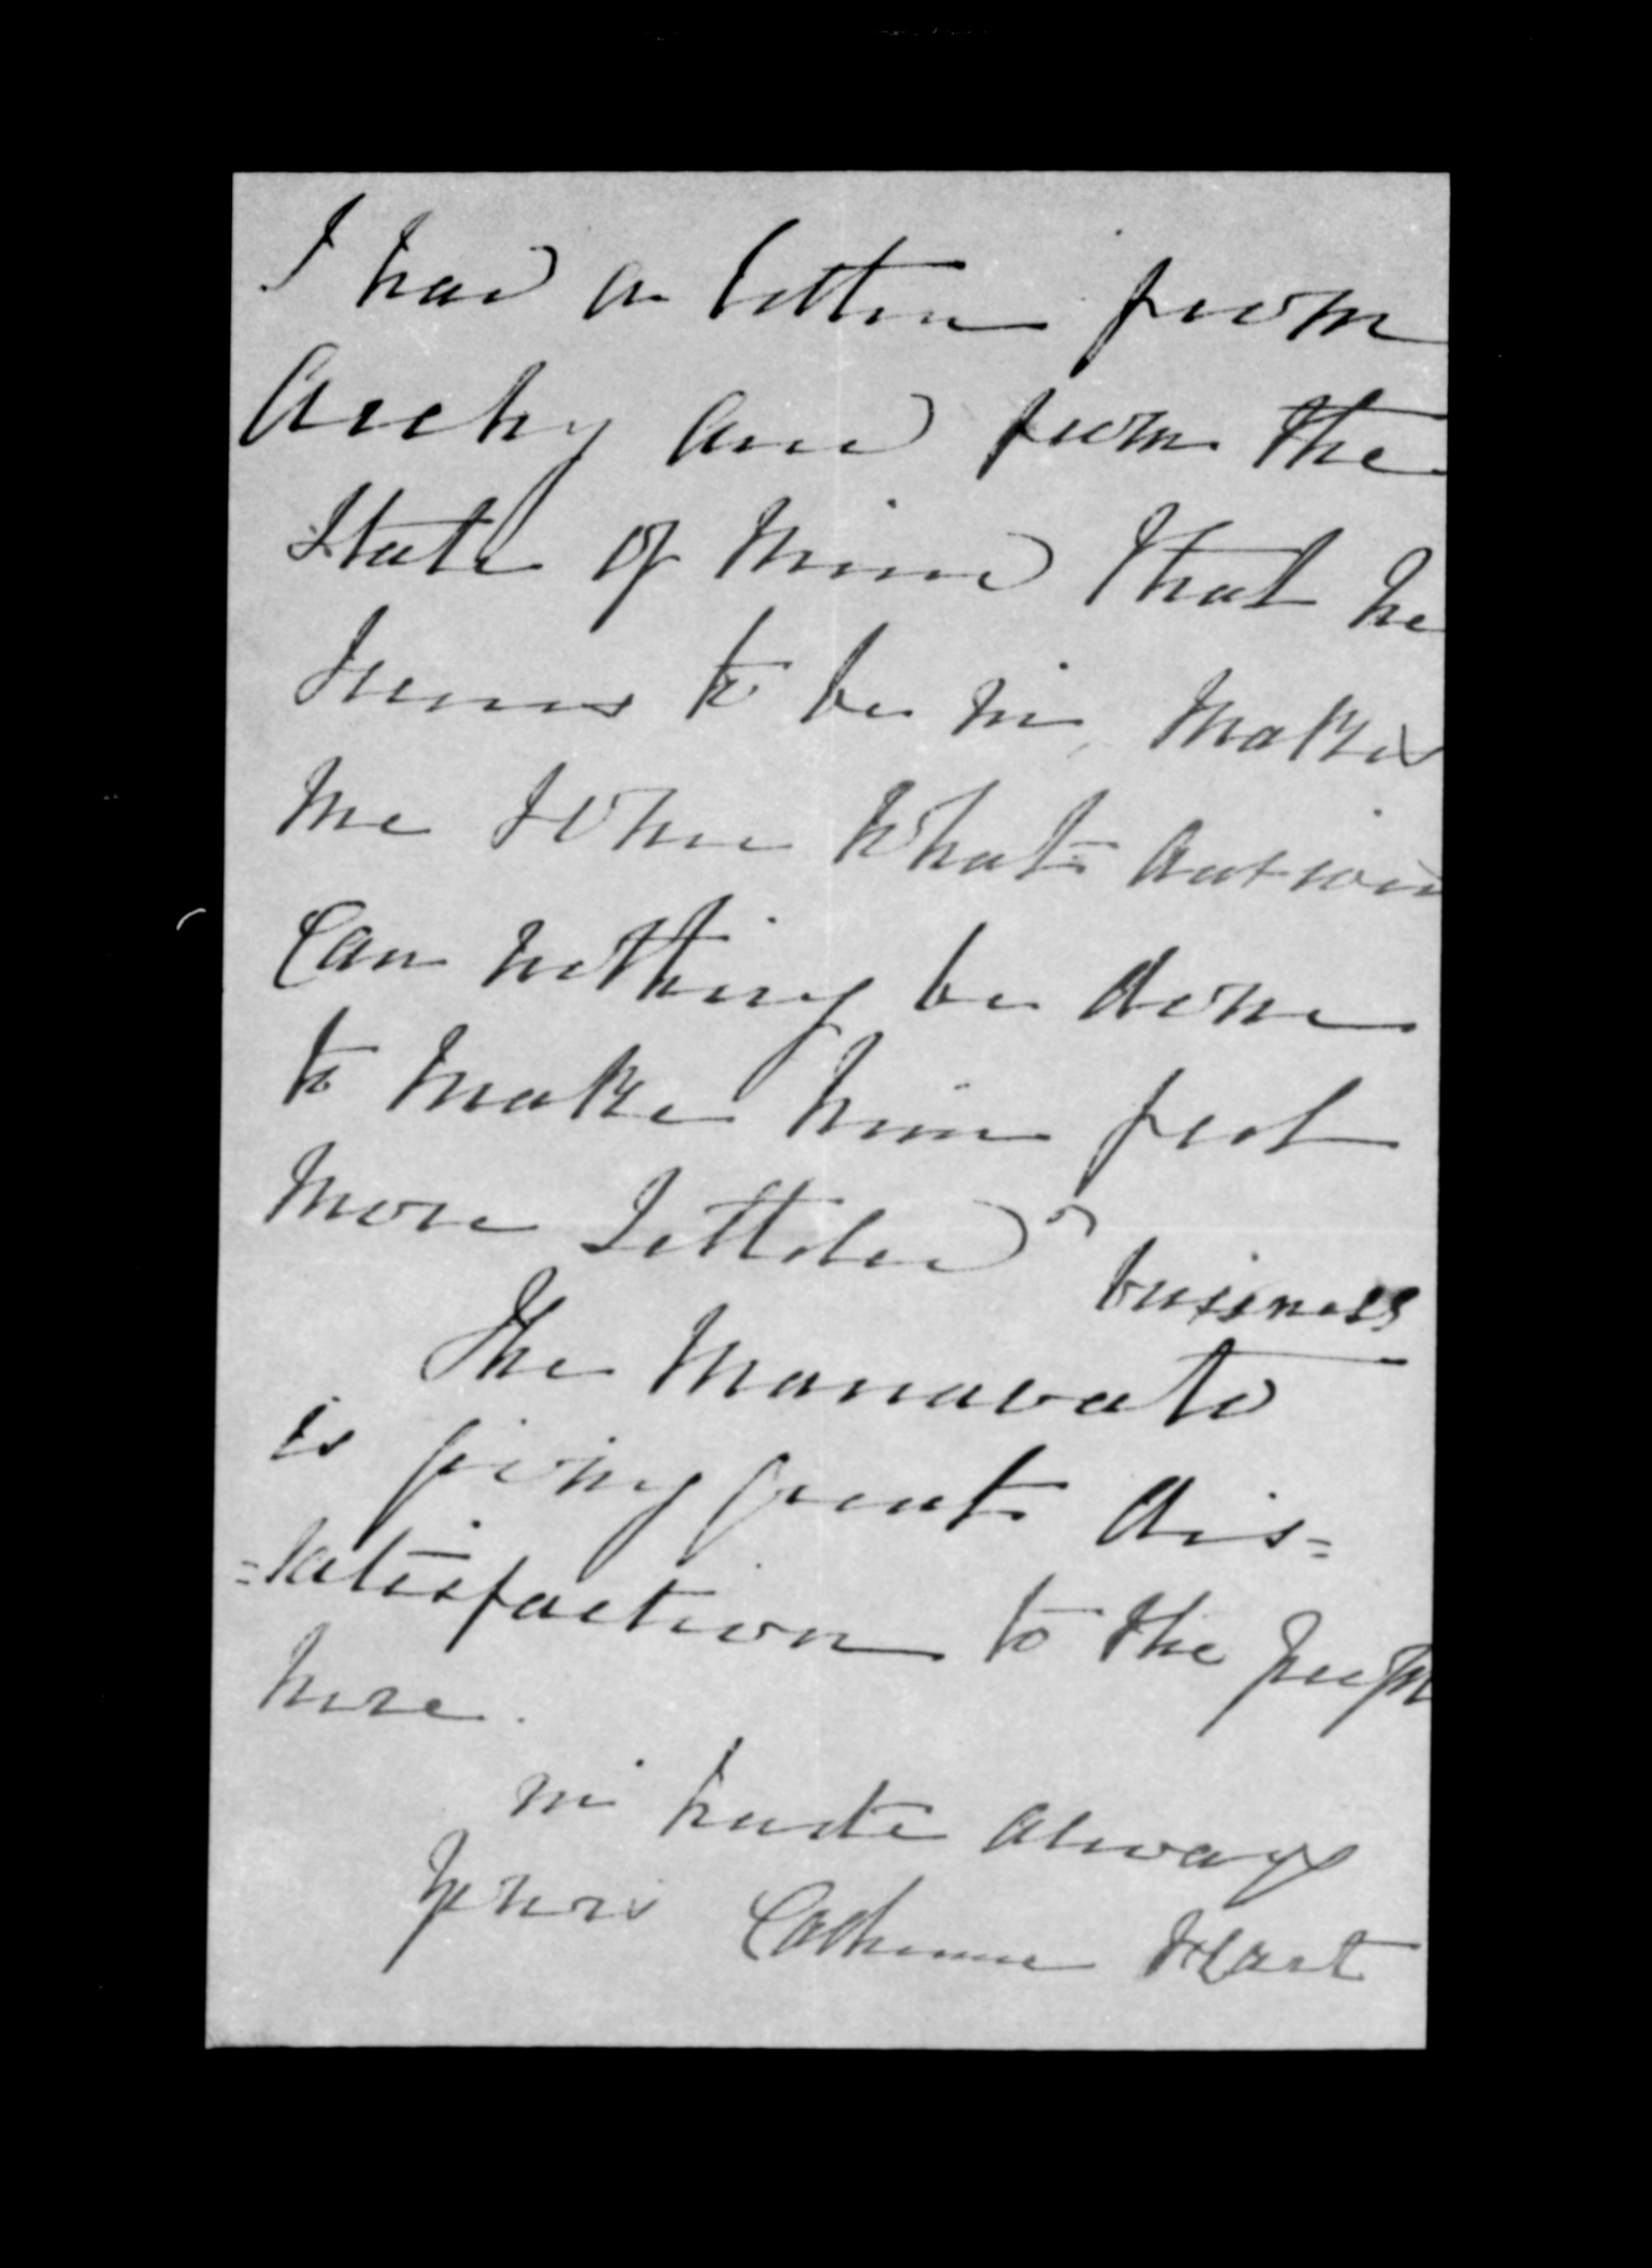 I had a letter from
Archy and from the
state of mind that he
seems to be in, makes
me some what anxious
Can nothing be done
to make him feel
more settled?
business
The Manawatu
is giving great dis=
=satisfaction to the people
here.
in haste always
yours Catherine Hart